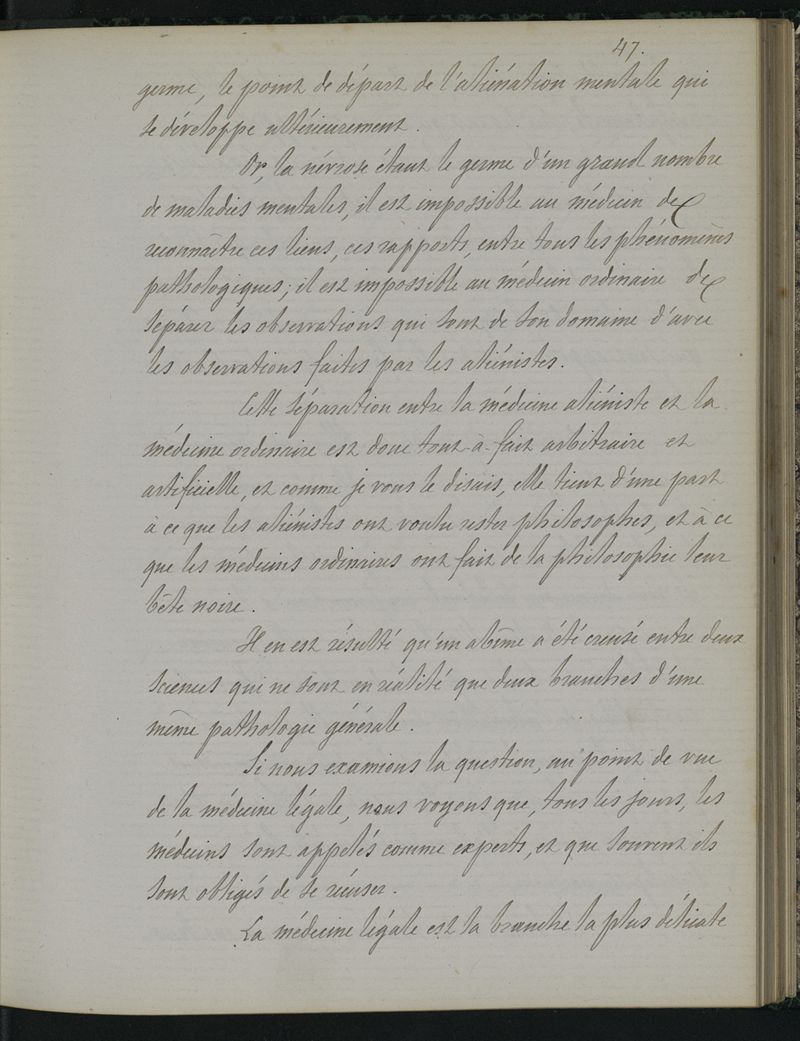 47.
germe, le point de départ de l'aliénation mentale qui
se développe ultérieurement.
Or, la névrose étant le germe d'un grand nombre
de maladies mentales, il est impossible au médecin de
reconnaître ces liens, ces rapports, entre tous les phénomènes
pathologiques; il est impossible au médecin ordinaire de
séparer les observations qui sont de son domaine d'avec
les observations faites par les aliénistes.
Cette séparation entre la médecine aliéniste et la
médecine ordinaire est donc tout-à-fait arbitraire et
artificielle, et comme je vous le disais, elle tient d'une part
à ce que les aliénistes ont voulu rester philosophes, et à ce
que les médecins ordinaires ont fait de la philosophie leur
bête noire.
Il en est résulté qu'un abîme a été creusé entre deux
sciences qui ne sont en réalité que deux branches d'une
même pathologie générale.
Si nous examinons la question, au point de vue
de la médecine légale, nous voyons que, tous les jours, les
médecins sont appelés comme experts, et que souvent ils
sont obligés de se récuser.
La médecine légale est la branche la plus délicate